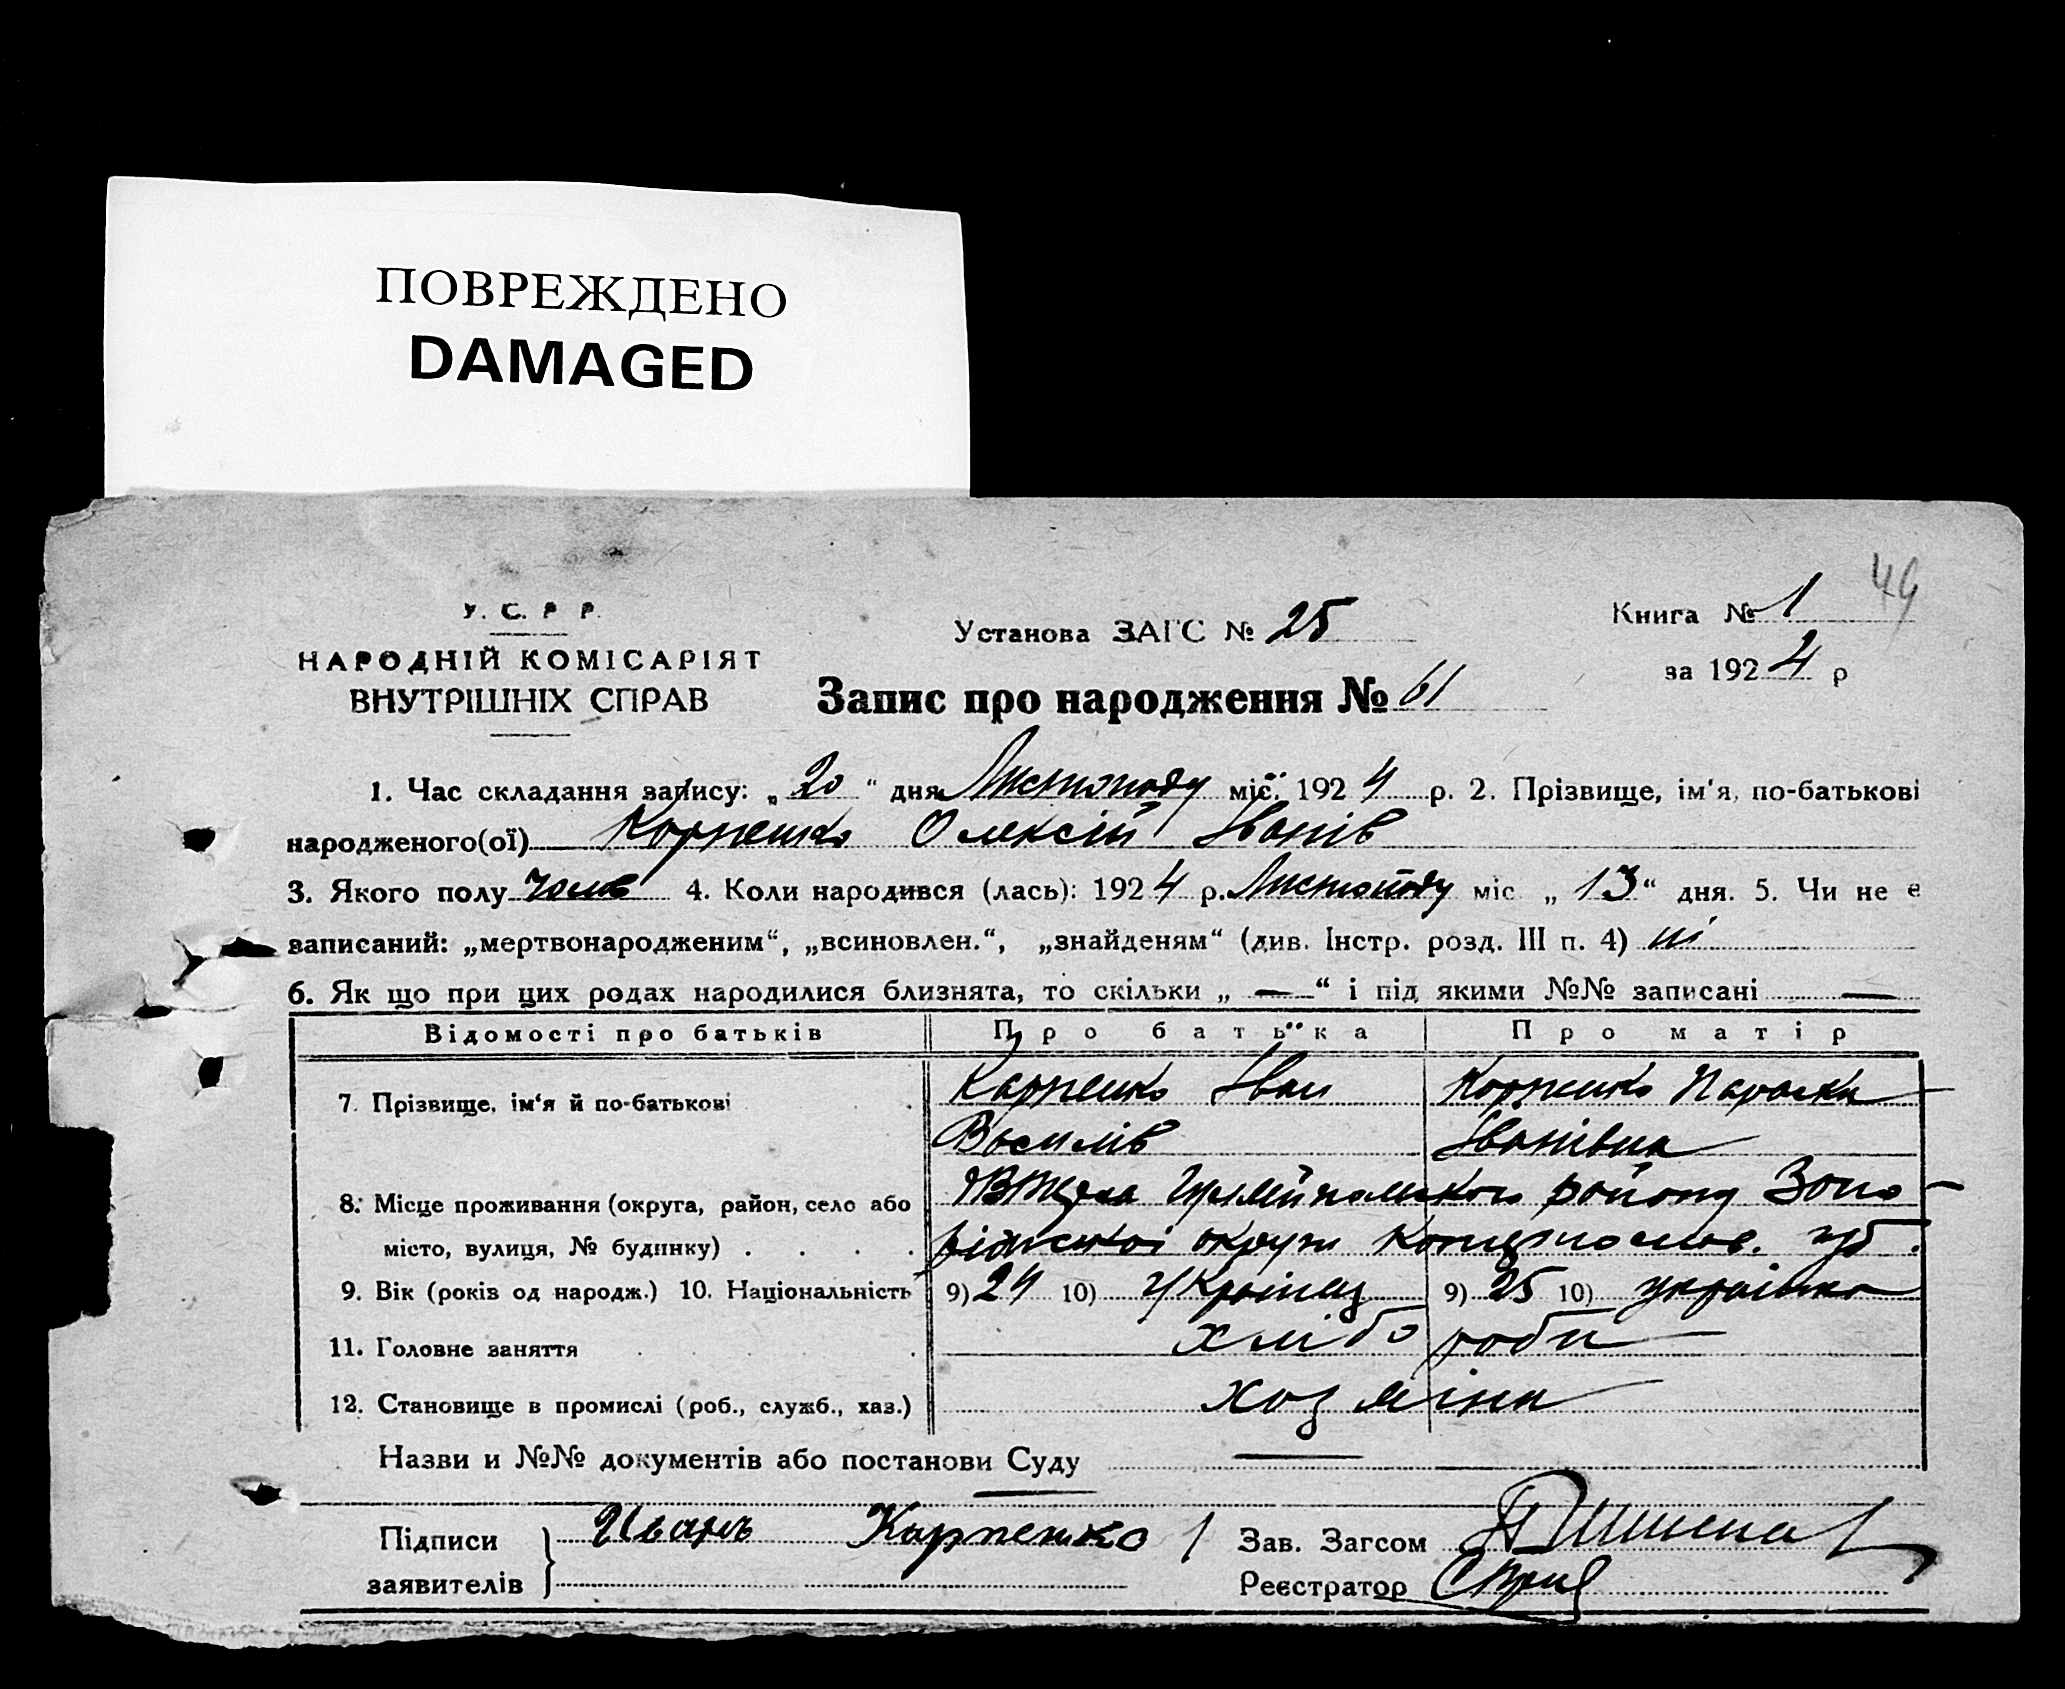 ПОВРЕЖДЕНО
DAMAGED
49
У. С. Р. Р.
НАРОДНІЙ КОМІСАРІЯТ
ВНУТРІШНІХ СПРАВ
Установа ЗАГС № 25
Книга № 1
за 1924 р
Запис про народження № 61
1. Час складання запису: „20“ дня Листопаду міс. 1924 р. 2. Прізвище, ім'я, по-батькові
народженого(ої) Карпенко Олексій Іванів
3. Якого полу чолов 4. Коли народився (лась): 1924 р. Листопаду міс „13“ дня. 5. Чи не є
записаний: „мертвонародженим“, „всиновлен.“, „знайденям“ (див. Інстр. розд. III п. 4) ні
6. Як що при цих родах народилися близнята, то скільки „—“ і під якими №№ записані —
Відомості про батьків Про батька Про матір
7. Прізвище, ім'я й по-батькові Карпенко Іван Карпенко Параска
Василів Іванівна
8. Місце проживання (округа, район, село або Гуляйпольского району Запо
місто, вулиця, № будинку) ріжської округи Катеринослав. губ.
9. Вік (років од народж.) 10. Національність 9) 24 10) Українец 9) 25 10) українка
11. Головне заняття хлібороби
12. Становище в промислі (роб., служб., хаз.) хозяїни
Назви и №№ документів або постанови Суду —
Підписи Иванъ Карпенко Зав. Загсом
заявителів Реєстратор